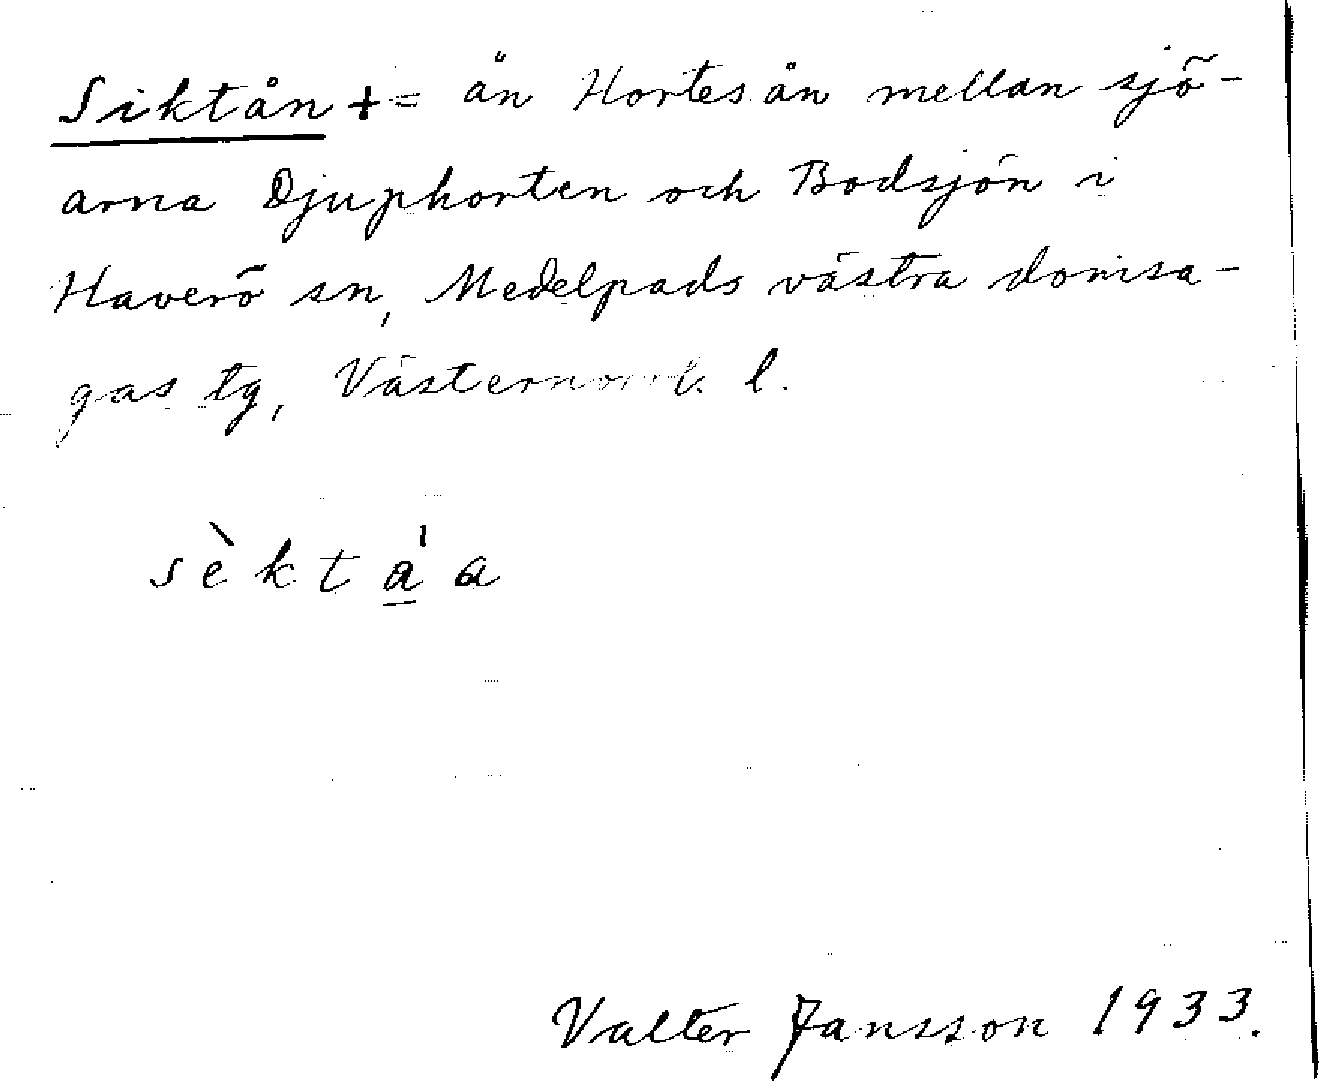 Siktån + = ån Hortesån mellan sjö-
arna Djuphorten och Bodsjön i
Haverö sn, Medelpads västra domsa-
gas tg, Västernorrl. l.
sèkta̲̍a
Valter Jansson 1933.